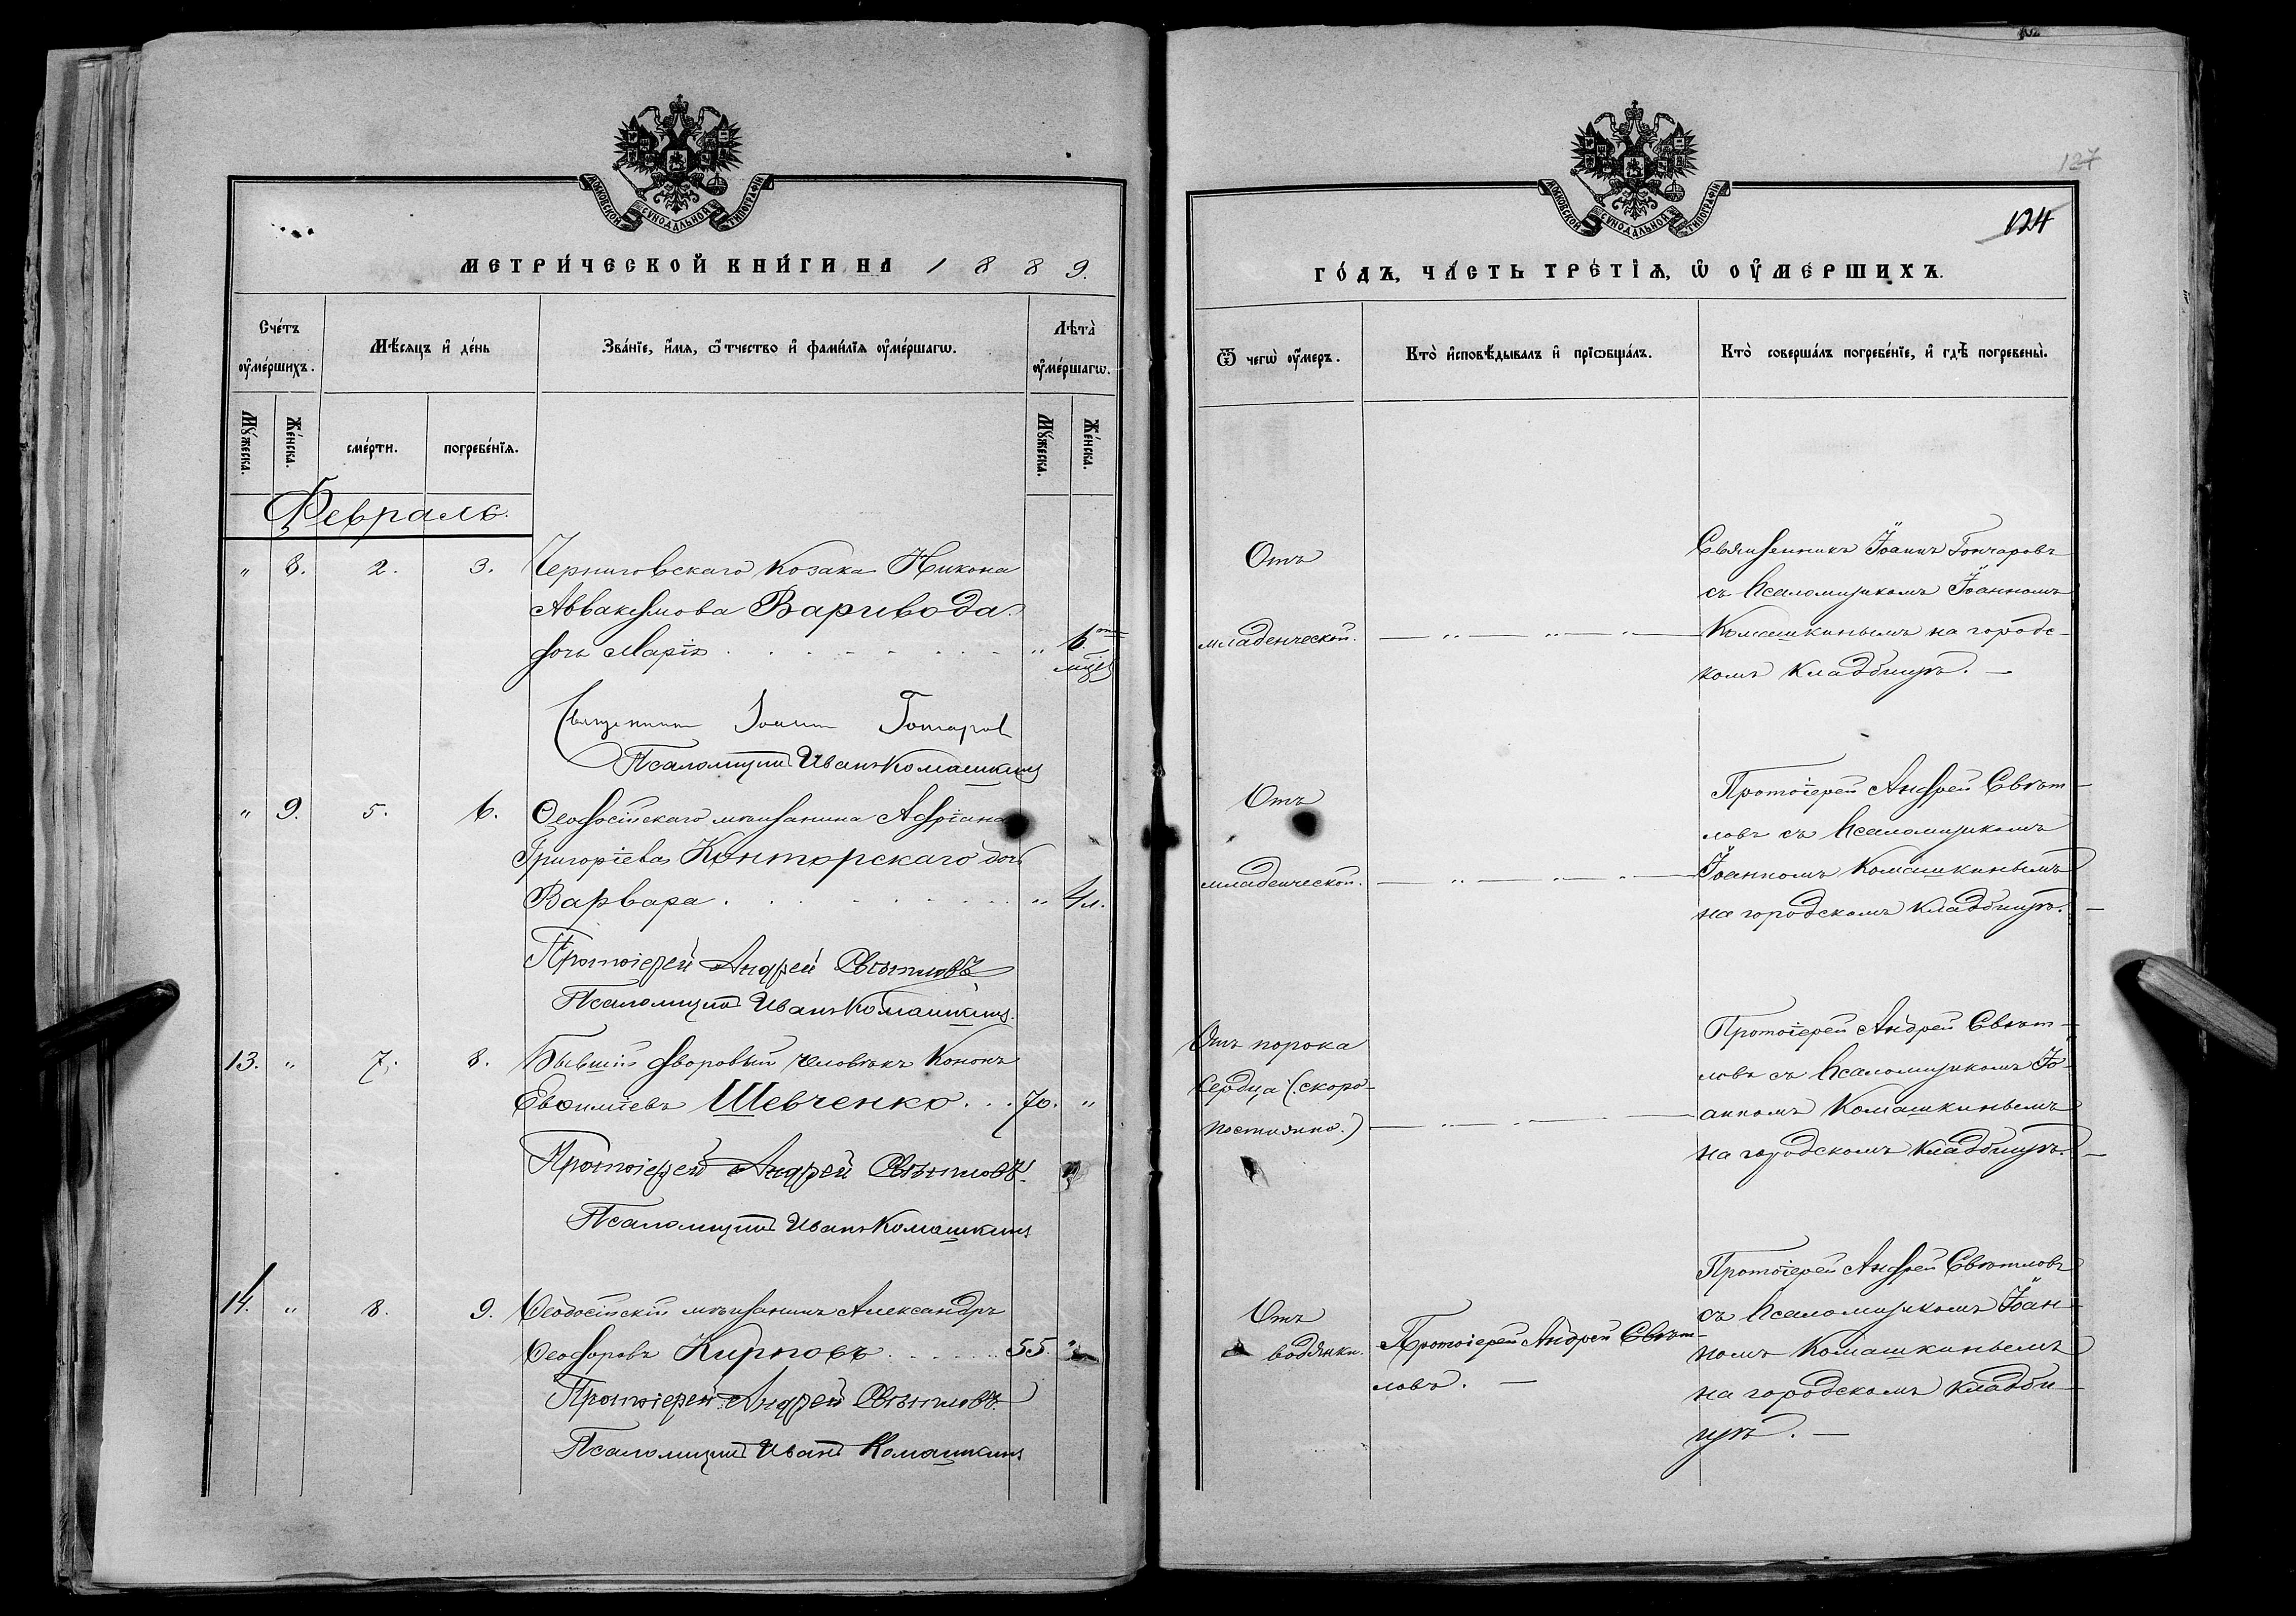 МОСКОВСКОЙ СѴНОДАЛЬНОЙ ТИПОГРАФІИ
МЕТРИ́ЧЕСКОЙ КНИ́ГИ НА 1889.
Сче́тъ оу҆ме́ршихъ.
Мѣ́сяцъ и҆ де́нь
Зва́нїе, и҆́мя, ѻ҆́тчество и҆ фами́лїя оу҆ме́ршагѡ.
Лѣта̀ оу҆ме́ршагѡ.
Мꙋ́жеска.
Же́нска.
сме́рти.
погребе́нїя.
Мꙋ́жеска.
Же́нска.
Февраль.
" 8. 2. 3. Черниговскаго козака Никона
Аввакумова Варивода
дочь Марія " 6.
мцъ
Священникъ Іоаннъ Гончаров
Псаломщикъ Иванъ Комашкинъ
" 9. 5. 6. Ѳеодосійскаго мѣщанина Адріана
Григоріева Конторскаго дочь
Варвара " 4 л.
Протоіерей Андрей Свѣтловъ
Псаломщикъ Иванъ Комашкинъ.
13. " 7. 8. Бывшій дворовый человѣкъ Кононъ
Евѳиміевъ Шевченко 70. "
Протоіерей Андрей Свѣтловъ.
Псаломщикъ Иванъ Комашкинъ
14. " 8. 9. Ѳеодосійскій мѣщанинъ Александръ
Ѳеодоровъ Кирповъ 55. "
Протоіерей Андрей Свѣтловъ.
Псаломщикъ Иванъ Комашкинъ
127
124
МОСКОВСКОЙ СѴНОДАЛЬНОЙ ТИПОГРАФІИ
ГО́ДЪ, ЧА́СТЬ ТРЕ́ТІЯ, Ѡ҆ ОУ҆МЕ́РШИХЪ.
Ѿ чегѡ̀ оу҆́меръ.
Кто̀ и҆сповѣ́дывалъ и҆ прїѡбща́лъ.
Кто̀ соверша́лъ погребе́нїе, и҆ гдѣ̀ погребены̀.
Отъ
младенческой.
Священникъ Іоаннъ Гончаровъ
съ псаломщикомъ Іоанномъ
Комашкинымъ на городс-
комъ кладбищѣ. —
Отъ
младенческой.
Протоіерей Андрей Свѣт-
ловъ съ псаломщикомъ
Іоанномъ Комашкинымъ
на городскомъ кладбищѣ. —
Отъ порока
сердца (скоро-
постижно.)
Протоіерей Андрей Свѣт-
ловъ съ псаломщикомъ Іо-
анномъ Комашкинымъ
на городскомъ кладбищѣ. —
Отъ
водянки.
Протоіерей Андрей Свѣт-
ловъ. —
Протоіерей Андрей Свѣтловъ
съ псаломщикомъ Іоан-
номъ Комашкинымъ
на городскомъ кладби-
щѣ. —